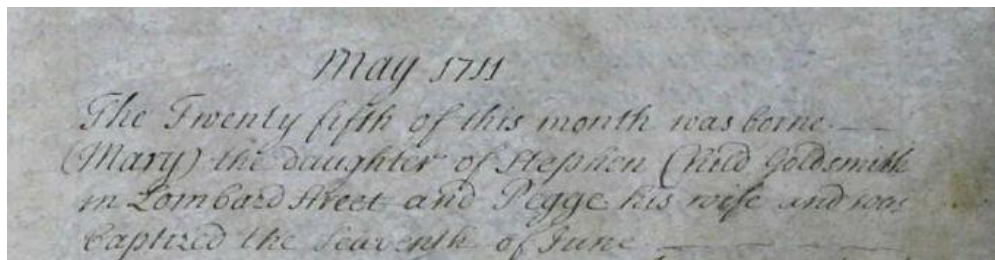 May 1711
The Twenty fifth of this month was borne
(Mary) the daughter of Stephen Child Goldsmith
in Lombard street and Pegge his wife and was
Baptized the Seaventh of June